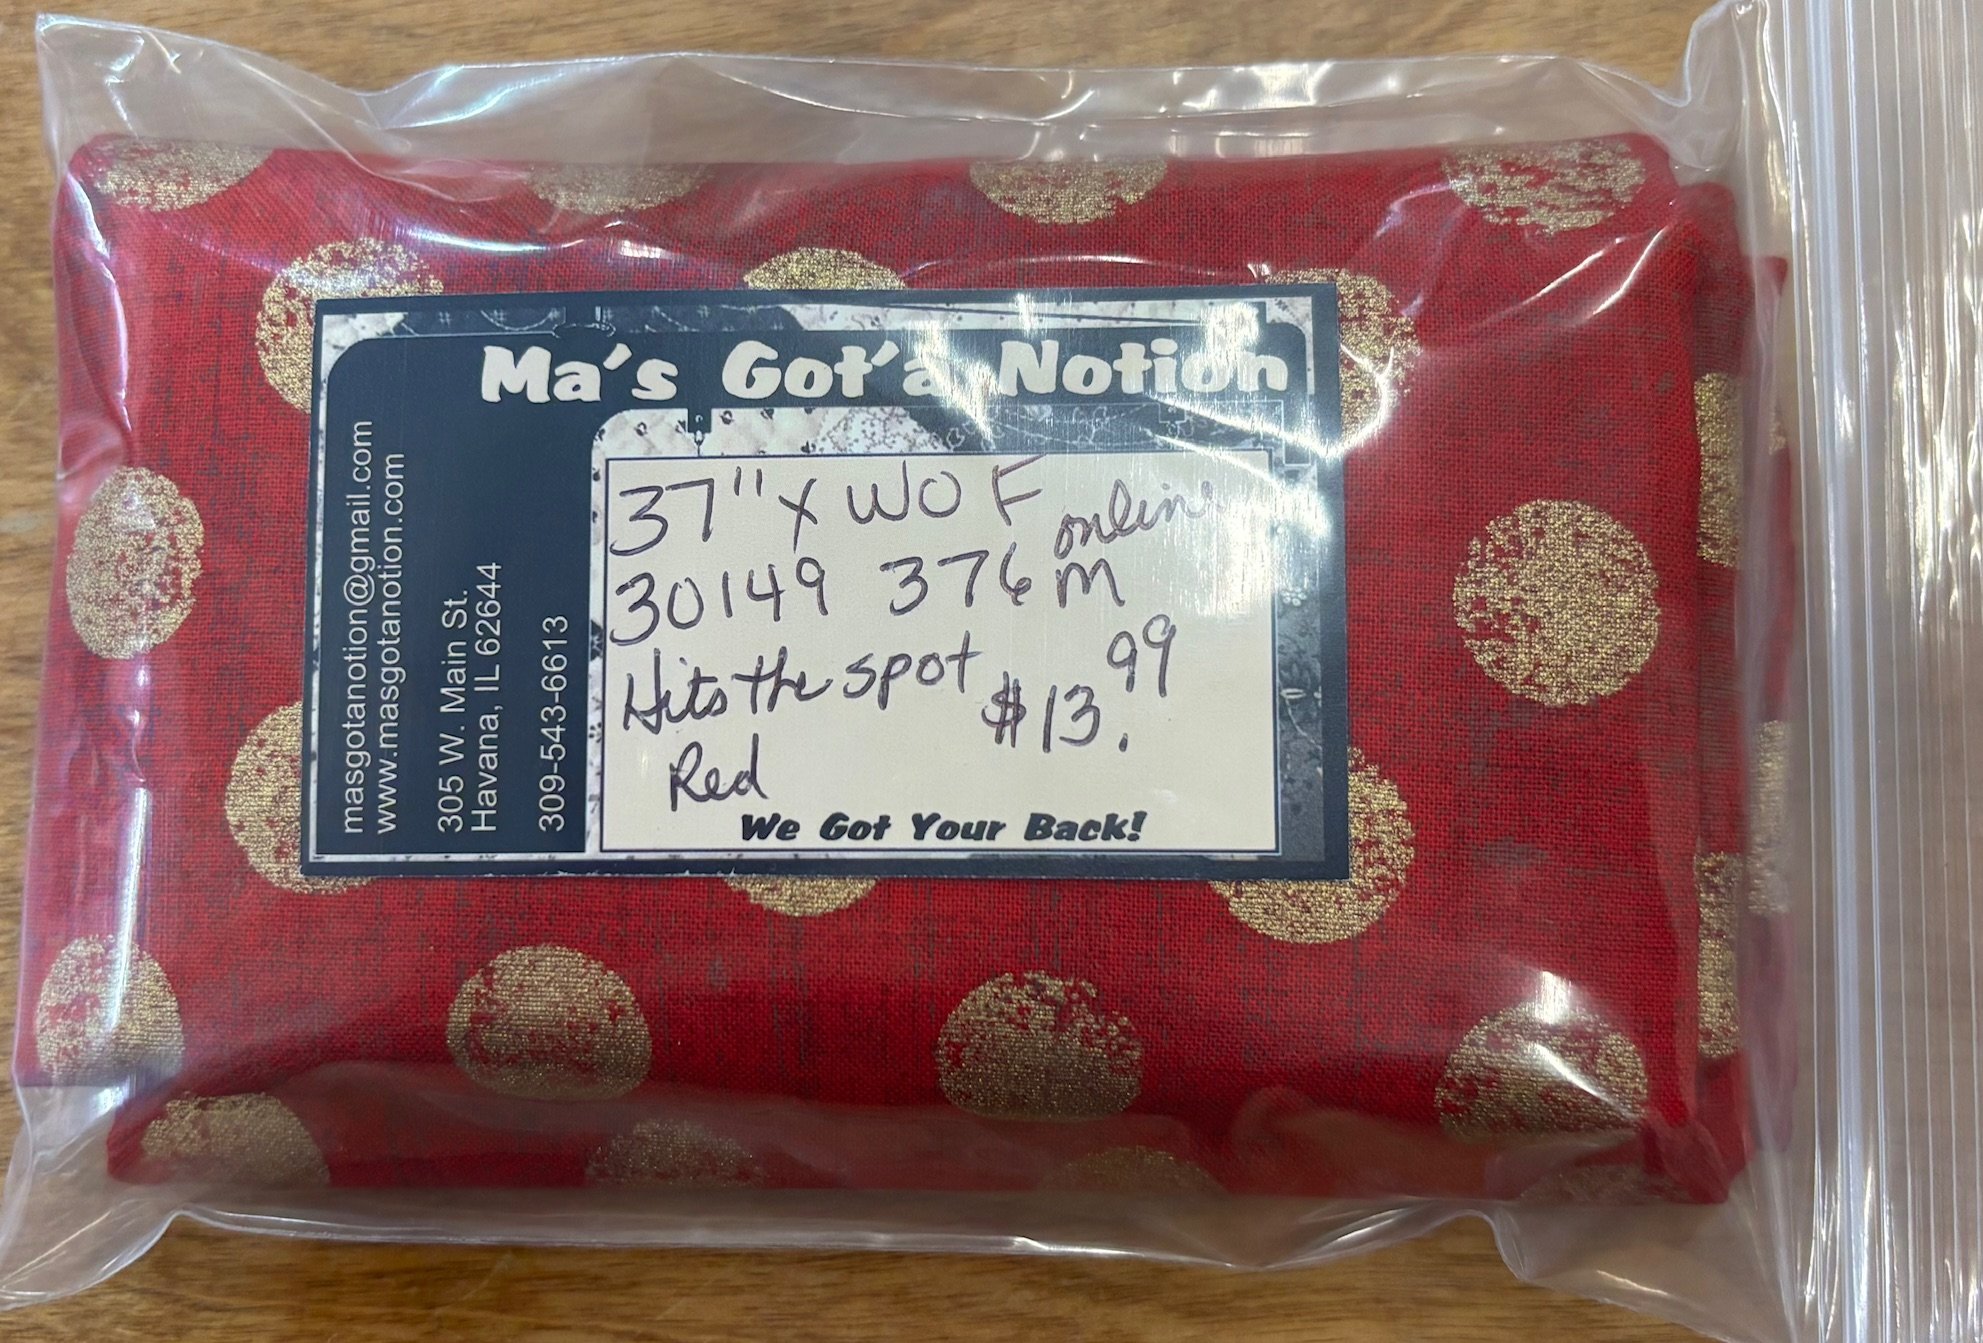 Ma's Got'a Notion
masgotanotion@gmail.com
www.masgotanotion.com
305 W. Main St.
Havana, IL 62644
309-543-6613
37" x WOF online
30149 376 M
Hits the spot $13.99
Red
We Got Your Back!